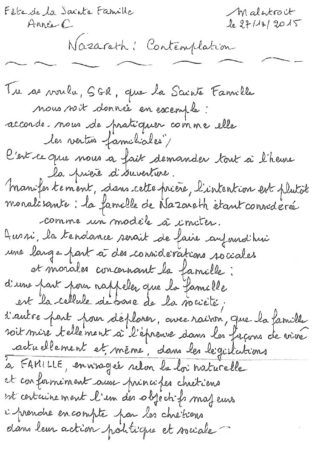 Fête de la Sainte Famille
Année C
Malestroit
le 27/12/2015
Nazareth : Contemplation
Tu as voulu, SGR, que la Sainte Famille
nous soit donnée en exemple :
accorde-nous de pratiquer comme elle
les vertus familiales"/
C'est ce que nous a fait demander tout à l'heure
la prière d'ouverture.
Manifestement, dans cette prière, l'intention est plutôt
moralisante : la famille de Nazareth étant considéré
comme un modèle à imiter.
Aussi, la tendance serait de faire aujourd'hui
une large part à des considérations sociales
et morales concernant la famille :
d'une part pour rappeler que la famille
est la cellule de base de la société ;
d'autre part pour déplorer, avec raison, que la famille
soit mise tellement à l'épreuve dans les façons de vivre
actuellement et, même, dans les législations
a FAMILLE, envisagée selon la loi naturelle
et conformément aux principes chrétiens
est certainement l'un des objectifs majeurs
à prendre en compte par les chrétiens
dans leur action politique et sociale